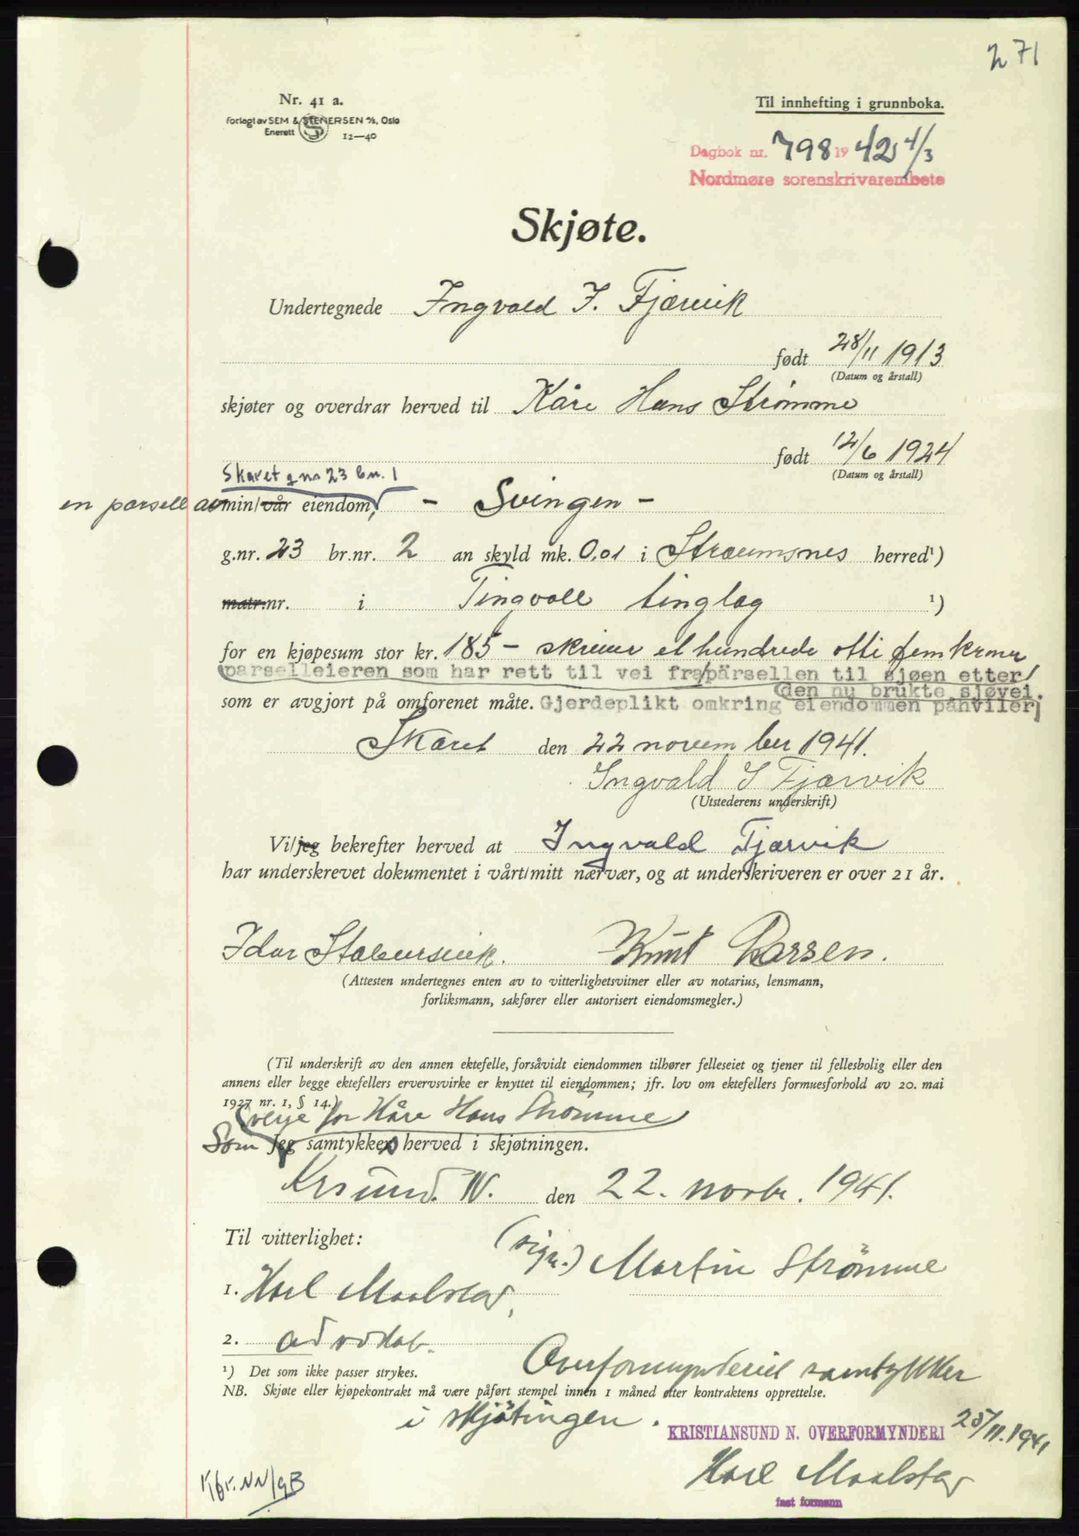 271
Nr. 41 a.
Forlagt av SEM & STENERSEN A/S, Oslo
Enerett
12—40
Til innhefting i grunnboka.
Dagbok nr. 798 1942 4/3
Nordmøre sorenskrivarembete
Skjøte.
Undertegnede Ingvald I. Fjærvik
født 28/11 1913
(Datum og årstall)
skjøter og overdrar herved til Kåre Hans Strømme
født 12/6 1924
(Datum og årstall)
Skaret g no 23 bn. 1
en parsell av min/vår eiendom, - Svingen -
g.nr. 23 br.nr. 2 an skyld mk. 0,01 i Straumsnes herred¹)
matr.nr. i Tingvoll tinglag ¹)
for en kjøpesum stor kr. 185 - skriver et hundrede otti fem kroner
parselleieren som har rett til vei fra parsellen til sjøen etter
den nu brukte sjøvei.
som er avgjort på omforenet måte. Gjerdeplikt omkring eiendommen påhviler
Skaret den 22 november 1941.
Ingvald I Fjærvik
(Utstederens underskrift)
Vi/jeg bekrefter herved at Ingvald Fjærvik
har underskrevet dokumentet i vårt/mitt nærvær, og at underskriveren er over 21 år.
Idar Knut Larsen.
(Attesten undertegnes enten av to vitterlighetsvitner eller av notarius, lensmann,
forliksmann, sakfører eller autorisert eiendomsmegler.)
(Til underskrift av den annen ektefelle, forsåvidt eiendommen tilhører felleseiet og tjener til fellesbolig eller den
annens eller begge ektefellers ervervsvirke er knyttet til eiendommen; jfr. lov om ektefellers formuesforhold av 20. mai
1927 nr. 1, § 14.)
verje for Kåre Hans Strømme
Som Jeg samtykker herved i skjøtningen.
Krsund. N. den 22. novbr. 1941.
Til vitterlighet:
(sign.) Martin Strömme
1. Karl Maalstad,
2. advokat.
¹) Det som ikke passer strykes.
Overformynderiet samtykker
NB. Skjøte eller kjøpekontrakt må være påført stempel innen 1 måned etter kontraktens opprettelse.
i skjøtingen.
KRISTIANSUND N. OVERFORMYNDERI 25/11. 1941
Karl Maalstad
fast formann
Kfr. NN/9B